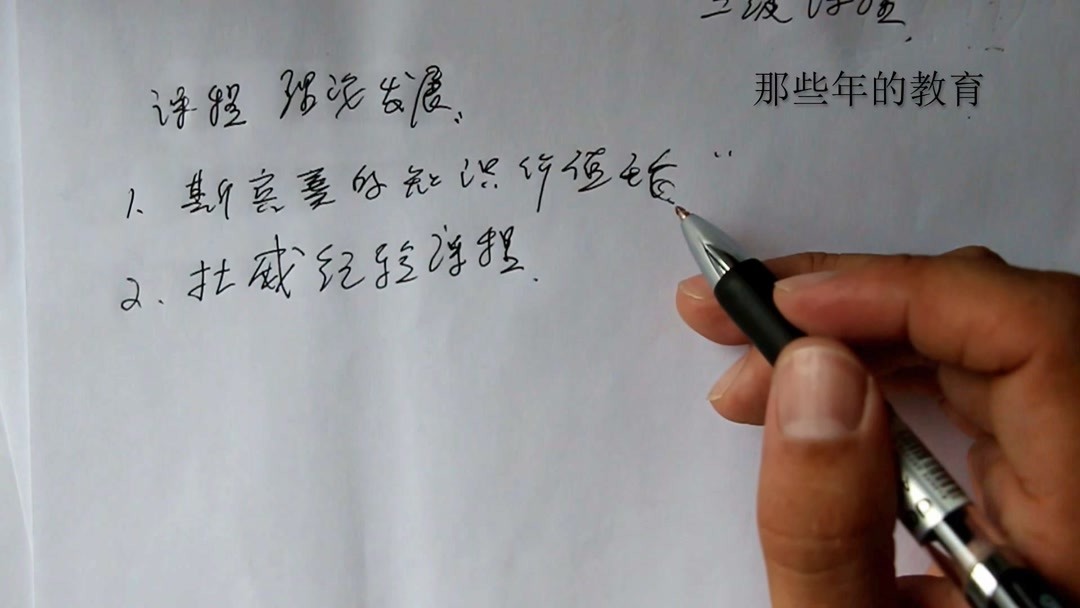 三级课程
那些年的教育
课程 理论发展
1. 斯宾塞的知识价值论 "
2. 杜威经验课程.